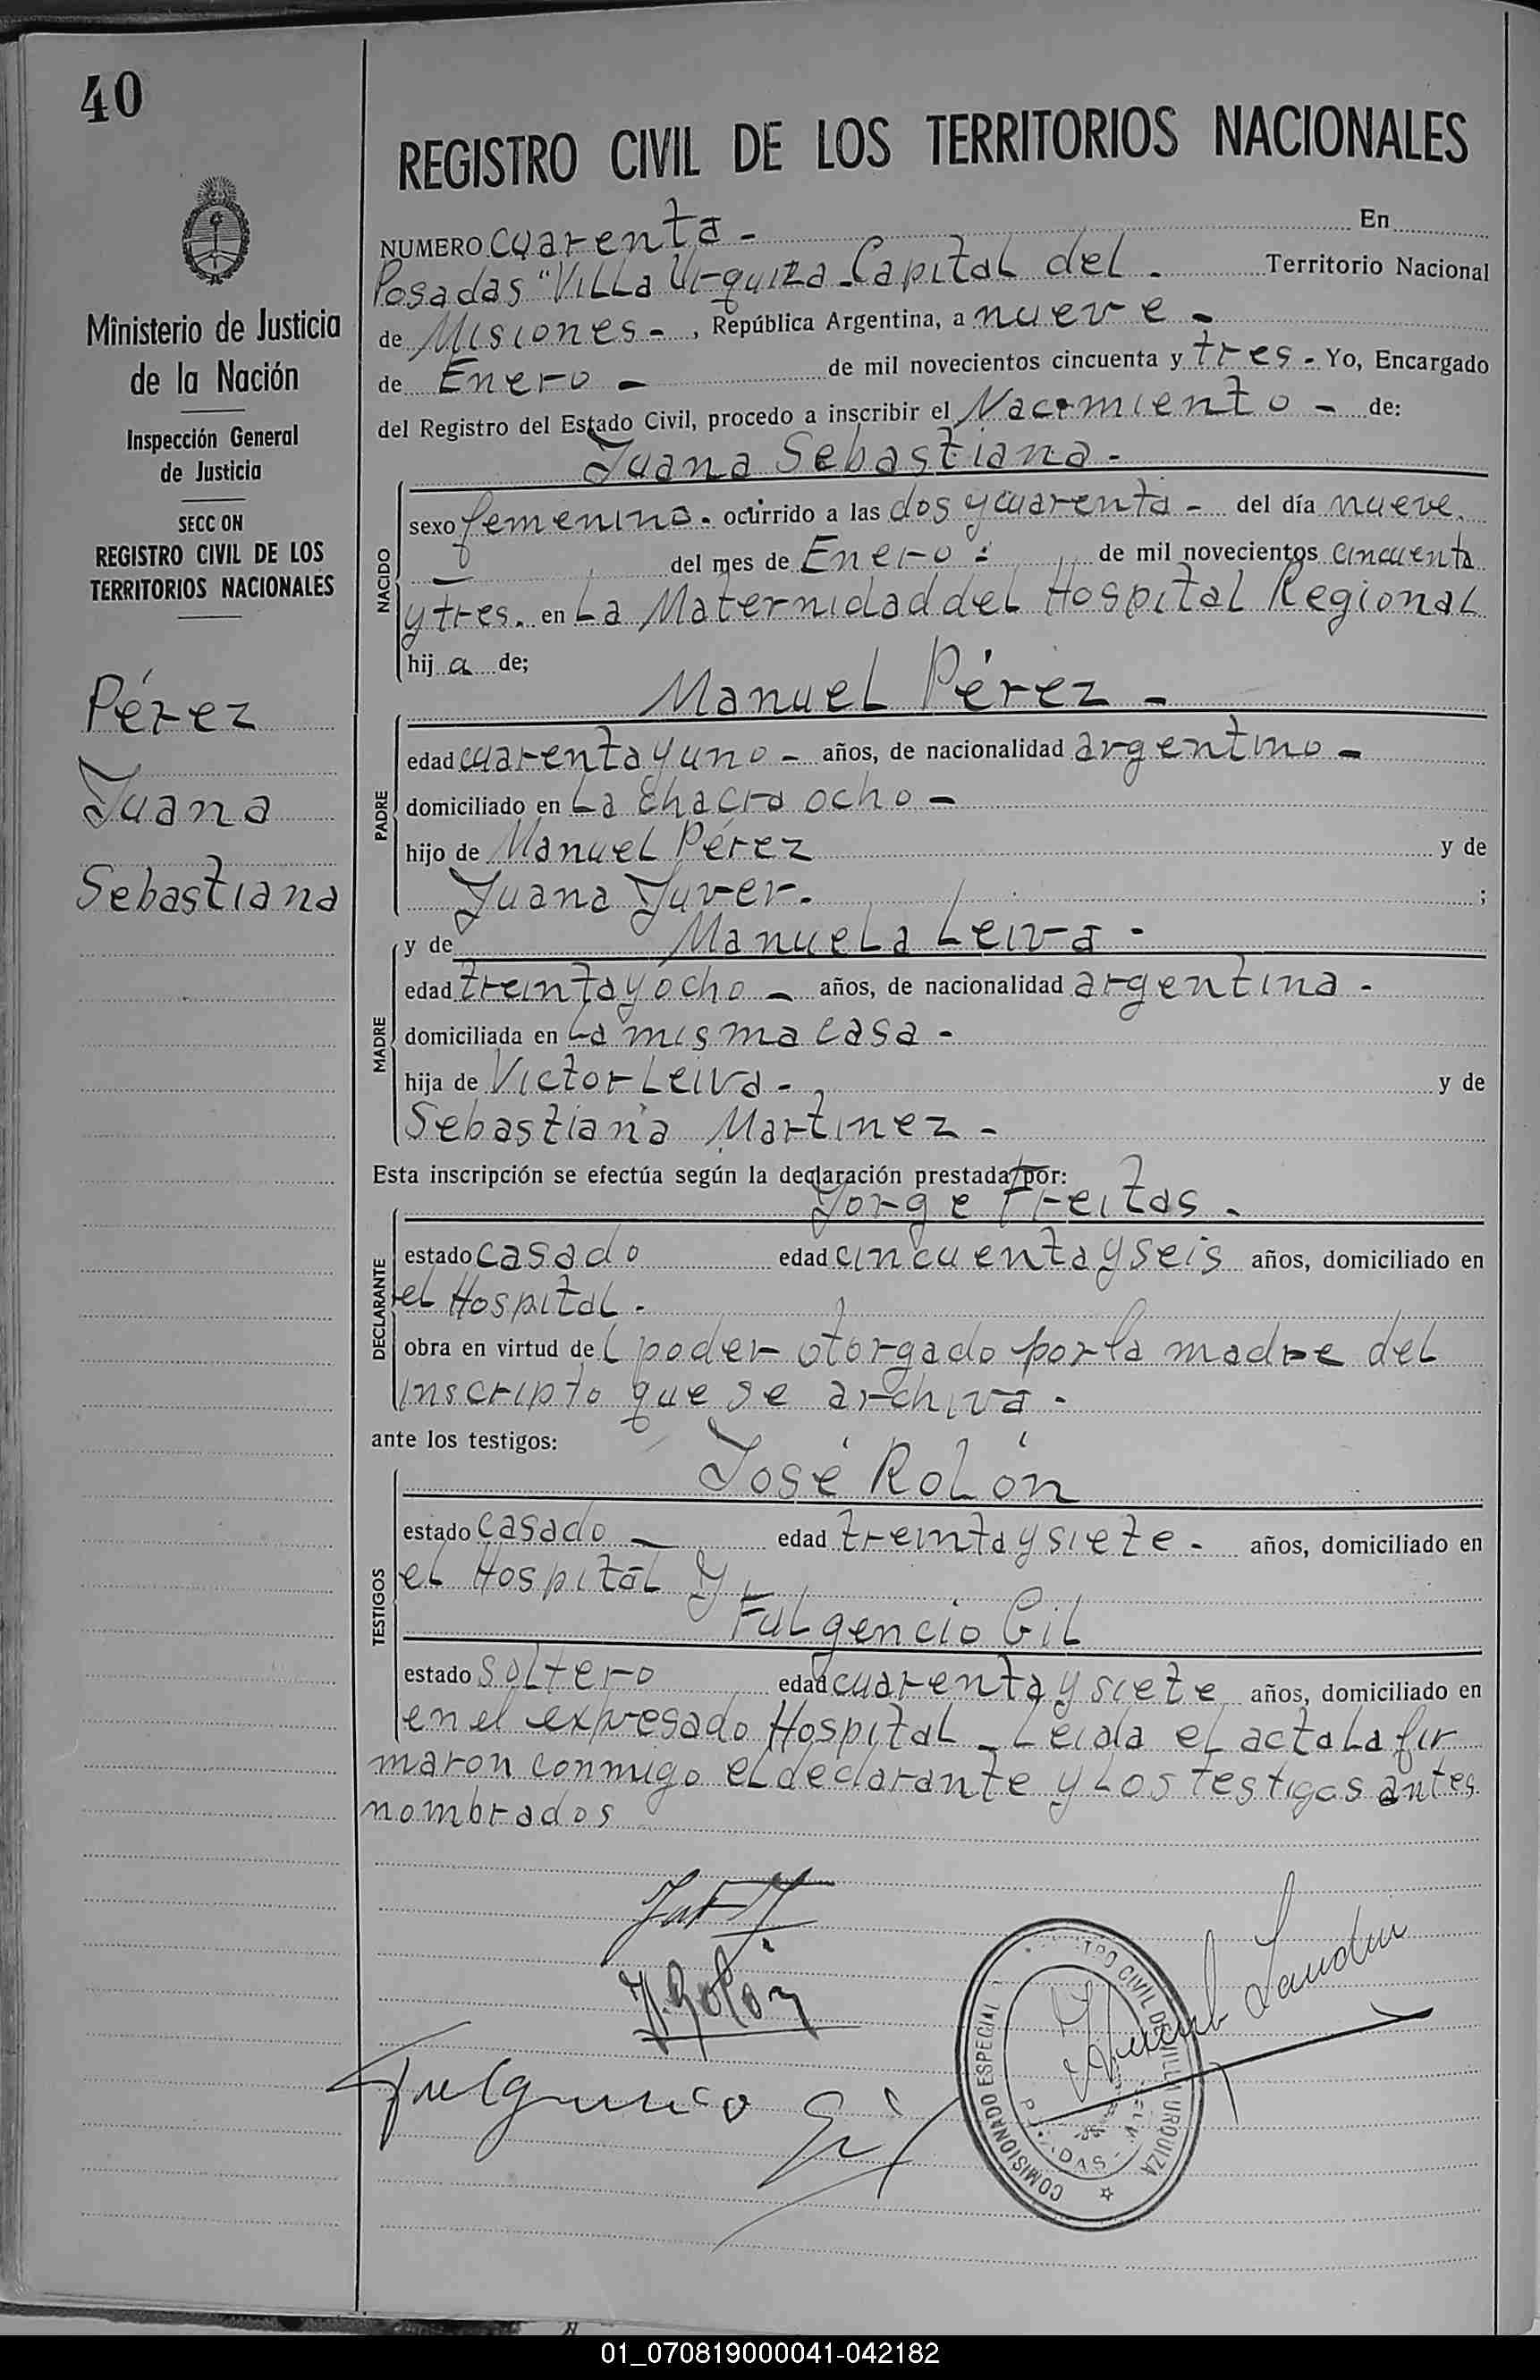 40
REGISTRO CIVIL DE LOS TERRITORIOS NACIONALES
Ministerio de Justicia
de la Nación
Inspección General
de Justicia
SECC ON
REGISTRO CIVIL DE LOS
TERRITORIOS NACIONALES
Pérez
Juana
Sebastiana
NUMERO cuarenta - En
Posadas "Villa Urquiza - Capital del - Territorio Nacional
de Misiones - , República Argentina, a nueve -
de Enero - de mil novecientos cincuenta y tres - Yo, Encargado
del Registro del Estado Civil, procedo a inscribir el Nacimiento - de:
Juana Sebastiana -
NACIDO
sexo femenino - ocurrido a las dos y cuarenta - del día nueve
- del mes de Enero - de mil novecientos cincuenta
y tres. en La Maternidad del Hospital Regional
hij a de;
Manuel Pérez -
PADRE
edad cuarenta y uno - años, de nacionalidad argentino -
domiciliado en La Chacra ocho -
hijo de Manuel Pérez y de
Juana Yuver. ;
y de Manuela Leiva -
MADRE
edad treinta y ocho - años, de nacionalidad argentina -
domiciliada en La misma casa -
hija de Victor Leiva - y de
Sebastiana Martinez -
Esta inscripción se efectúa según la declaración prestada por:
Jorge Freitas -
DECLARANTE
estado casado edad cincuenta y seis años, domiciliado en
el Hospital -
obra en virtud del poder otorgado por la madre del
inscripto que se archiva -
ante los testigos:
José Rolón
TESTIGOS
estado casado - edad treinta y siete - años, domiciliado en
el Hospital y
Fulgencio Gil
estado soltero edad cuarenta y siete años, domiciliado en
en el expresado Hospital - Leida el acta La fir
maron conmigo el declarante y Los testigos antes
nombrados
J. Rolón
Fulgencio Gil
COMISIONADO ESPECIAL
CIVIL DE VILLA URQUIZA
01_070819000041-042182